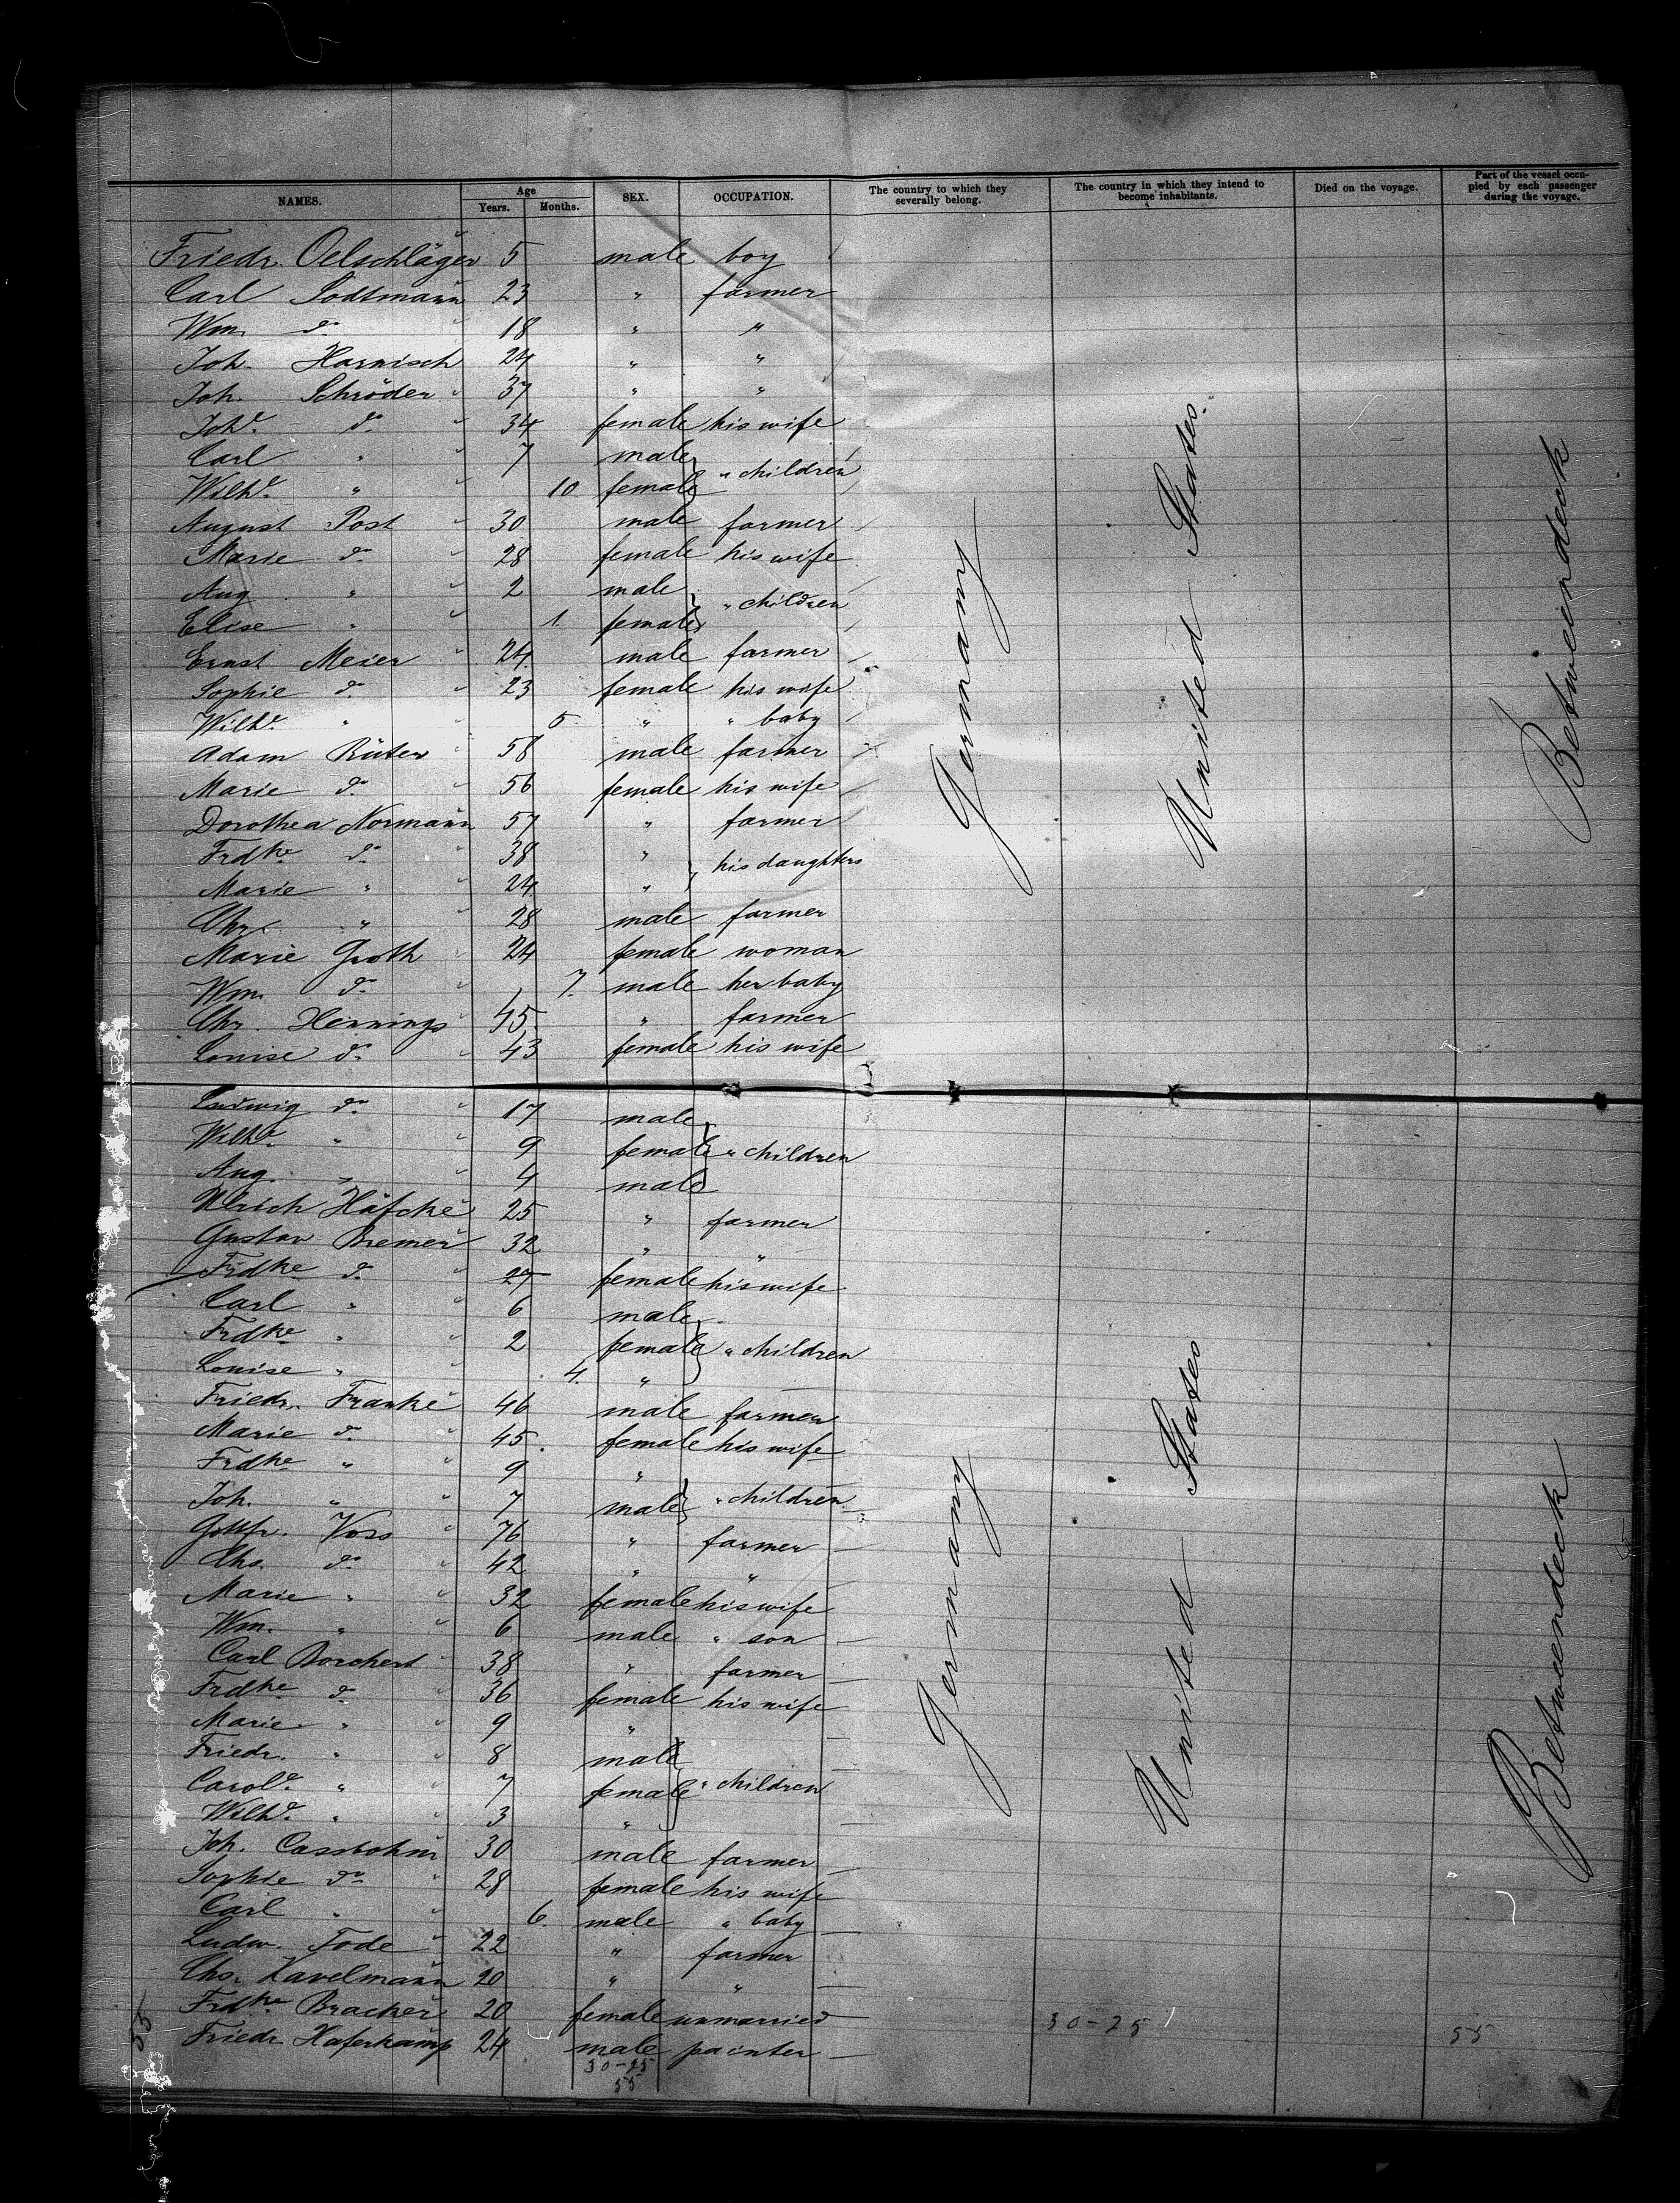 NAMES. Age Years. Months. SEX. OCCUPATION. The country to which they severally belong. The country in which they intend to become inhabitants. Died on the voyage. Part of the vessel occupied by each passenger during the voyage.
Friedr. Oelschläger 5 male boy
Carl Todtmann 23 " farmer
Wm. do 18 " "
Joh. Harnisch 24 " "
Joh. Schröder 37 " "
Johe. do 34 female his wife
Carl " 7 male
Wilhe. " 10 female " children
August Post 30 male farmer
Marie do 28 female his wife
Aug. " 2 male
Elise " 1. female " children
Ernst Meier 24 male farmer
Sophie do 23 female his wife
Wilhe. " 5 " " baby
Adam Rüter 58 male farmer
Marie do 56 female his wife
Dorothea Normann 57 " farmer
Frdke do 38 "
Marie " 24 " his daughters
Chr. " 28 male farmer
Marie Groth 24 female woman
Wm. do 7. male her baby
Chr. Hennings 45 " farmer
Louise do 43 female his wife
Germany United States. Betweendeck
Ludwig do 17 male
Wilhe. " 9 female " children
Aug. " 4 male
Ulrich Häfcke 25 " farmer
Gustav Bremer 32 " "
Frdke do 27 female his wife
Carl " 6 male
Frdke " 2 female " children
Louise " 4. "
Friedr. Franke 46 male farmer
Marie do 45. female his wife
Frdke " 9 "
Joh. " 7 male " children
Gottfr. Voss 76 " farmer
Chs. do 42 " "
Marie " 32 female his wife
Wm. " 6 male " son
Carl Borchert 38 " farmer
Frdke do 36 female his wife
Marie " 9 "
Friedr. " 8 male
Carole. " 7 female " children
Wilhe. " 3 "
Joh. Cassbohm 30 male farmer
Sophie do 28 female his wife
Carl " 6. male " baby
Ludw. Tode 22 " farmer
Chs. Havelmann 20 " "
Frdke Bracker 20 female unmarried
Friedr. Haferkamp 24 male painter
Germany United States Betweendeck
30-25
55
30-25
55
55